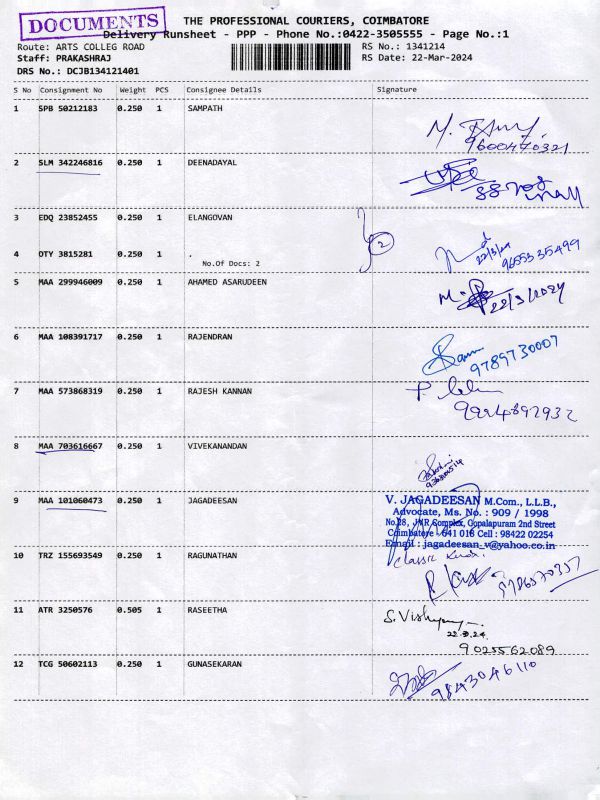 DOCUMENTS
THE PROFESSIONAL COURIERS, COIMBATORE
Delivery Runsheet - PPP - Phone No.:0422-3505555 - Page No.:1
Route: ARTS COLLEG ROAD RS No.: 1341214
Staff: PRAKASHRAJ RS Date: 22-Mar-2024
DRS No.: DCJB134121401
S No Consignment No Weight PCS Consignee Details Signature
1 SPB 50212183 0.250 1 SAMPATH
9600470321
2 SLM 342246816 0.250 1 DEENADAYAL
3 EDQ 23852455 0.250 1 ELANGOVAN
2
4 DTY 3815281 0.250 1 .
No.Of Docs: 2
22/3/24
9655535499
5 MAA 299946009 0.250 1 AHAMED ASARUDEEN
22/3/2024
6 MAA 108391717 0.250 1 RAJENDRAN
9789730007
7 MAA 573868319 0.250 1 RAJESH KANNAN
9994892932
8 MAA 703616667 0.250 1 VIVEKANANDAN
9 MAA 101060473 0.250 1 JAGADEESAN
V. JAGADEESAN M.Com., L.L.B.,
Advocate, Ms. No. : 909 / 1998
No.28, JMR Complex, Gopalapuram 2nd Street
Coimbatore - 641 018 Cell : 98422 02254
Email : jagadeesan_v@yahoo.co.in
10 TRZ 155693549 0.250 1 RAGUNATHAN
Classic
11 ATR 3250576 0.505 1 RASEETHA
22.3.24
9025562089
12 TCG 50602113 0.250 1 GUNASEKARAN
9843046110